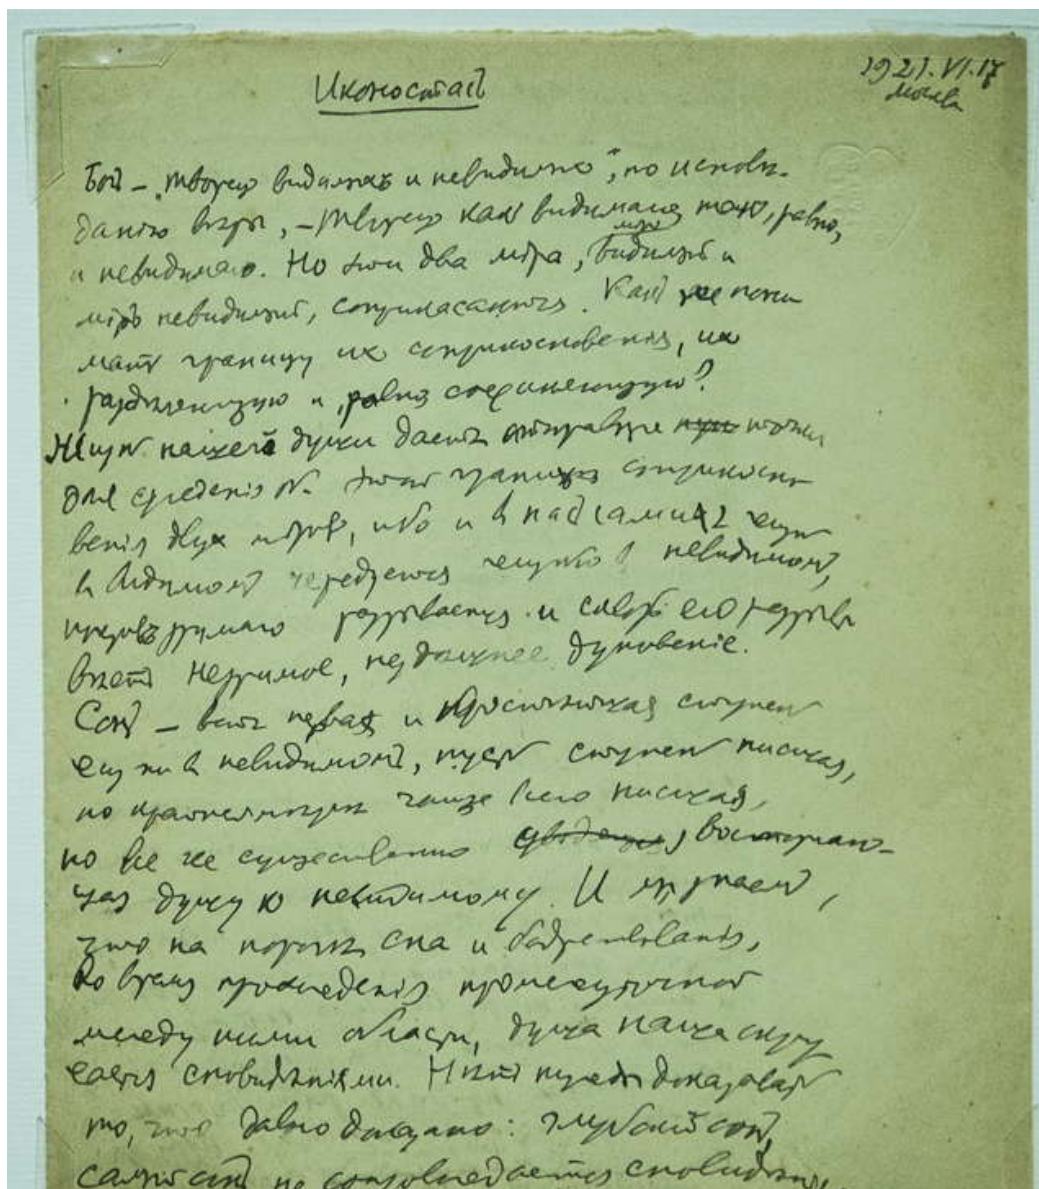 Иконостасъ
1921.VI.17
Москва
Богъ – „Творецъ видимыхъ и невидимыхъ“, по исповѣ-
данію вѣры, – Творецъ какъ видимаго
и невидимаго. Но эти два міра, міръ видимый и
міръ невидимый, соприкасаются. Какъ же пони
мать границу их соприкосновенія, их
раздѣляющую и соединяющую?
Жизнь нашей души даетъ точки
для сужденія об этой границѣ соприкосно
венія двухъ міровъ, ибо и въ насъ самихъ жизнь
въ видимомъ чередуется жизнью въ невидимомъ,
разрывается и сквозь его разрывы
вѣетъ незримое, нездѣшнее дуновеніе.
Сонъ – вотъ первая и простѣйшая ступень
жизни въ невидимомъ, пусть ступень низшая,
по крайней мѣрѣ чаще всего низшая,
но все же существенно восторгаю-
щая душу к невидимому. И мы знаемъ,
что на порогѣ сна и бодрствованія,
во время прохожденія промежуточной
между ними области, душа наша окру
жается сновидѣніями. Нѣтъ нужды доказывать
то, что давно доказано: глубокій сонъ,
самый сонъ не сопровождается сновидѣніями